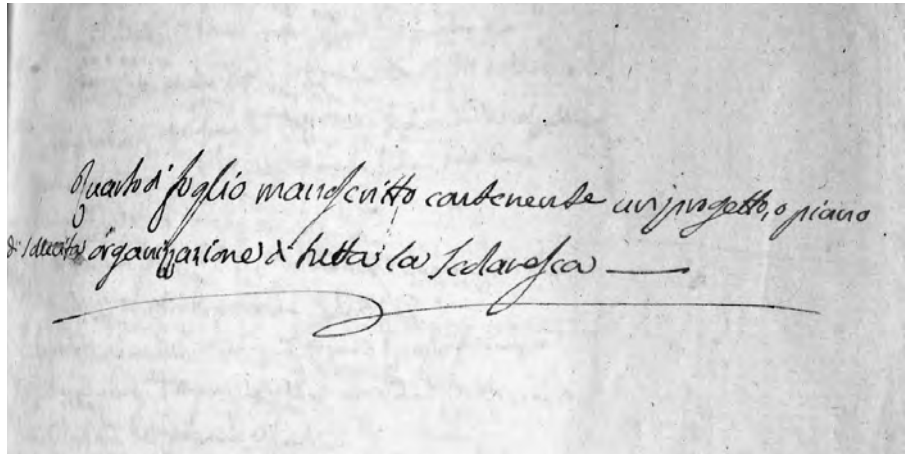 Quarto di foglio manoscritto contenente un progetto, o piano
di secreta organizazione di tutta la Scolaresca